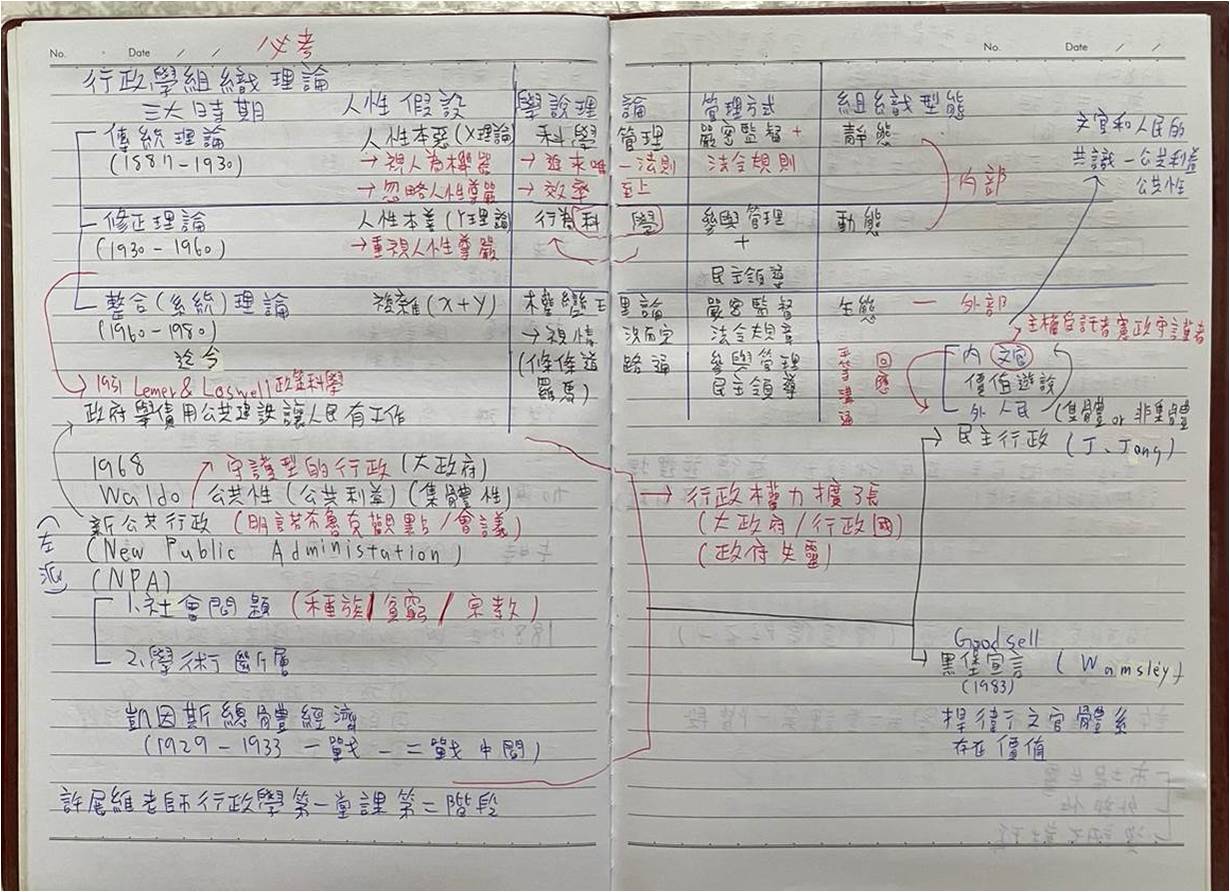 No. Date / /
必考
No. Date / /
行政學組織理論
三大時期 人性假設 學說理論 管理方式 組織型態
傳統理論 人性本惡(X理論) 科學管理 嚴密監督+ 靜態
(1887-1930) →視人為機器 →追求唯一法則 法令規則
→忽略人性尊嚴 →效率至上
內部
修正理論 人性本善(Y理論) 行為科學 參與管理 動態
(1930-1960) →重視人性尊嚴 +
民主領導
整合(系統)理論 複雜(X+Y) 權變理論 嚴密監督 生態 — 外部
(1960-1980) →視情況而定 法令規章
迄今 (條條道路通羅馬) 參與管理
民主領導
平等溝通
回應
文官和人民的
共識-公共利益
公共性
→主權受託者憲政守護者
內 文官
價值遊說
外 人民 (集體 or 非集體
→民主行政 (J. Jong)
→1951 Lerner & Laswell政策科學
政府舉債用公共建設讓人民有工作
1968 守護型的行政(大政府)
Waldo 公共性(公共利益)(集體性)
(左派)
新公共行政 (明諾布魯克觀點/會議)
(New Public Administation)
(NPA)
1.社會問題 (種族/貧窮/宗教)
2.學術斷層
凱因斯總體經濟
(1929-1933 一戰-二戰中間)
許展維老師行政學第一堂課第二階段
→行政權力擴張
(大政府/行政國)
(政府失靈)
Goodsell
→黑堡宣言 (Wamsley)
(1983)
捍衛了文官體系
存在價值